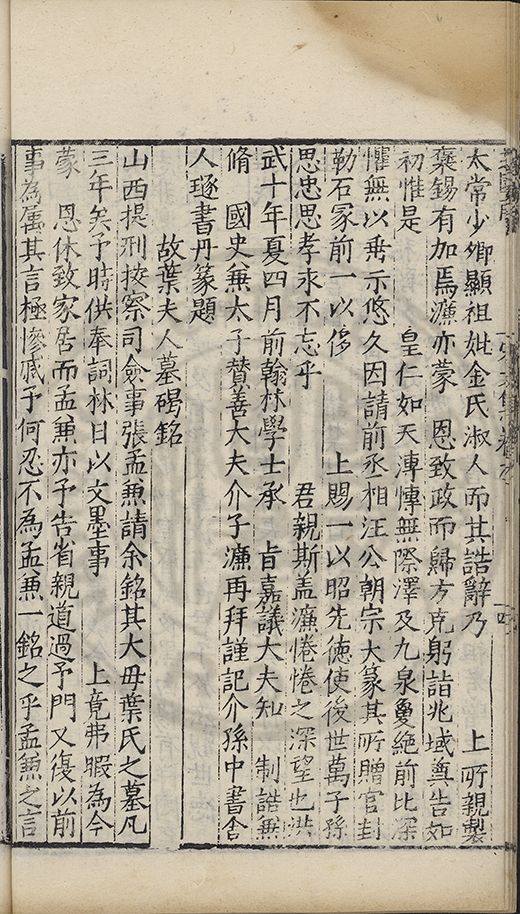 太常少卿顯祖妣金氏淑人而其誥辭乃 上所親製
褒錫有加焉濂亦蒙 恩致政而歸方克躬詣兆域奠告如
初惟是 皇仁如天溥博無際澤及九泉夐絶前比深
懼無以垂示悠久因請前丞相汪公朝宗大篆其所贈官封
勒石冢前一以侈 上賜一以昭先德使後世萬子孫
思忠思孝永不忘乎 君親斯盖濂惓惓之深望也洪
武十年夏四月前翰林學士承 旨嘉議大夫知 制誥兼
脩 國史兼太子贊善大夫介子濂再拜謹記介孫中書舍
人璲書丹篆題
故葉夫人墓碣銘
山西提刑按察司僉事張孟兼請余銘其大母葉氏之墓凡
三年矣予時供奉詞林日以文墨事 上竟弗暇為今
蒙 恩休致家居而孟兼亦予告省親道過予門又復以前
事為属其言極慘戚予何忍不為孟兼一銘之乎孟兼之言